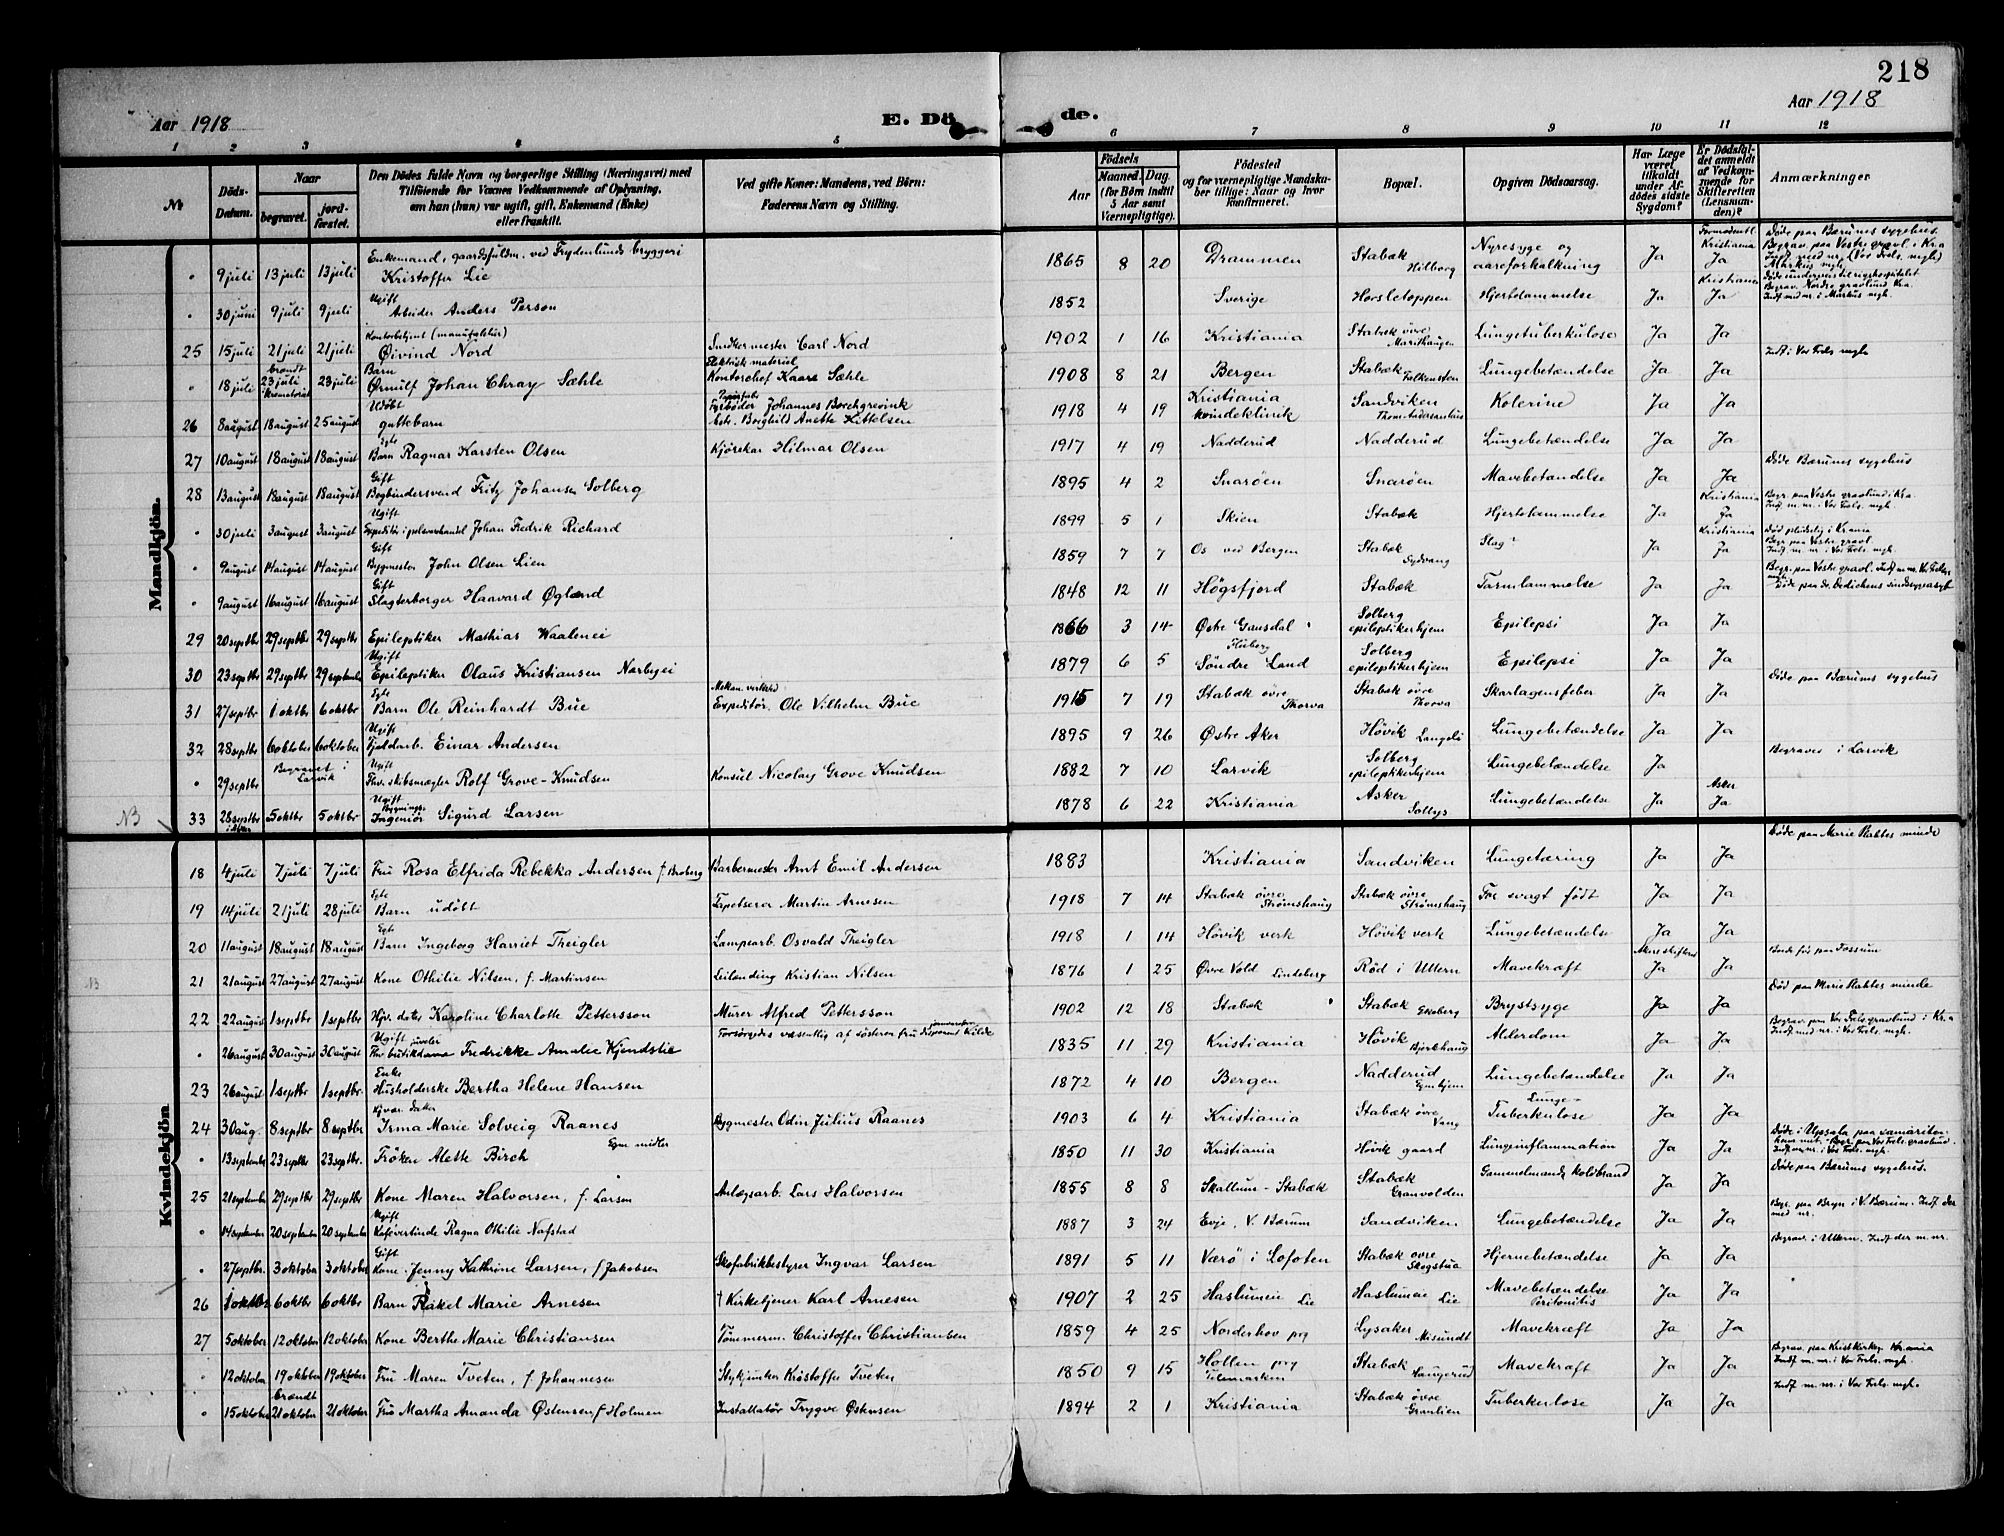 218
Aar 1918
E. Dö
de.
Aar 1918
1 2 3 4 5 6 7 8 9 10 11 12
№
Döds-Datum.
Naar
begravet.
jord-fæstet.
Den Dödes fulde Navn og borgerlige Stilling (Næringsvei) med Tilföiende for Voxnes Vedkommende af Oplysning, om han (hun) var ugift, gift, Enkemand (Enke) eller fraskilt.
Ved gifte Koner: Mandens, ved Börn: Faderens Navn og Stilling.
Födsels
Aar
Maaned. Dag.
(for Börn indtil 5 Aar samt Værnepligtige).
Födested og for værnepligtige Mandskaber tillige: Naar og hvor konfirmeret.
Bopæl.
Opgiven Dödsaarsag.
Har Læge været tilkaldt under Afdödes sidste Sygdom?
Er Dödsfaldet anmeldt af Vedkommende for Skifteretten (Lensmanden)?
Anmærkninger
Mandkjön.
" 9 juli 13 juli 13 juli Enkemand, gaardsfuldm. ved Frydenlunds bryggeri Kristoffer Lie 1865 8 20 Drammen Stabæk Hilborg Nyresyge og aareforkalkning Ja Kristiania Ja Döde paa Bærums sygehus. Begrav. paa Vestre gravl. i Kr.a
" 30 juni 9 juli 9 juli Ugift Arbeider Anders Person 1852 Sverige Horsletoppen Hjertelammelse Ja Kristiania Ja Begrav. Nordre gravlund Kr.a. Indf. m. nr. i Markus mgh.
25 15 juli 21 juli 21 juli Kontorbetjent (manufaktur) Øivind Nord Snedkermester Carl Nord 1902 1 16 Kristiania Stabæk övre Marithaugen Lungetuberkulose Ja Ja
" 18 juli brændt 23 juli Krematoriet 23 juli Barn Ørnulf Johan Chray Sæhle Elektrisk materiel Kontorchef Kaare Sæhle 1908 8 21 Bergen Stabæk Falkensten Lungebetændelse Ja Ja Indf. i Vor Frels. mgh
26 8 august 18 august 25 august Udöbt guttebarn Fyrböder Johannes Borchgrevink Borghild Anette Kittelsen 1918 4 19 Kristiania kvindeklinik Sandviken Kolerine Ja Ja
27 10 august 18 august 18 august Egte Barn Ragnar Karsten Olsen Kjörekar Hilmar Olsen 1917 4 19 Nadderud Nadderud Lungebetændelse Ja Ja
28 13 august 18 august 18 august Gift Bogbindersvend Fritz Johansen Solberg 1895 4 2 Snaröen Snaröen Mavebetændelse Ja Ja Döde Bærums sygehus
" 30 juli 3 august 3 august Ugift Johan Fredrik Richard 1899 5 1 Skien Stabæk Hjertelammelse Ja Kristiania Ja Begr. paa Vestre gravlund i Kr.a. Indf. m. nr. i Vor Frels. mgh.
" 9 august 14 august 14 august Gift Bygmester John Olsen Lien 1859 7 7 Os ved Bergen Stabæk Sydvang Slag Ja Kristiania Ja Död pludselig i Kr.ania Begr. paa Vestre gravl. Indf. m. nr. i Vor Frels. mgh.
" 9 august 16 august 16 august Gift Slagterborger Haavard Øglænd 1848 12 11 Högsfjord Stabæk Tarmlammelse Ja Ja Begr. paa Vestre gravl. Indf. m. nr. Vor Frels. mgh
29 20 septbr 29 septbr 29 septbr Epileptiker Mathias Waalenei 1866 3 14 Østre Gausdal Solberg epileptikerhjem Epilepsi Ja Ja
30 23 septbr 29 septbr 29 september Ugift Epileptiker Olaus Kristiansen Narbyei 1879 6 5 Söndre Land Solberg epileptikerhjem Epilepsi Ja Ja
31 27 septbr 1 oktbr 6 oktbr Egte Barn Ole Reinhardt Bue Mekan. verksted Expeditör Ole Vilhelm Bue 1915 7 19 Stabæk övre Thorva Stabæk övre Thorva Skarlagensfeber Ja Ja Döde paa Bærums sygehus
32 28 septbr 6 oktober 6 oktober Ugift Einar Andersen 1895 9 26 Østre Aker Hövik Lungebetændelse Ja Ja
" 29 septbr Begravet i Larvik Ugift Fhv. skibsmægler Rolf Grove-Knudsen Konsul Nicolay Grove Knudsen 1882 7 10 Larvik Solberg epileptikerhjem Lungebetændelse Ja Begraves i Larvik
NB 33 26 septbr 5 oktbr 5 oktbr Ugift Bygnings-Ingeniör Sigurd Larsen 1878 6 22 Kristiania Asker Solbys Lungebetændelse Ja Asker Ja
Kvindekjön
18 4 juli 7 juli 7 juli Fru Rosa Elfrida Rebekka Andersen f. Broberg Barbermester Arnt Emil Andersen 1883 Kristiania Sandviken Lungetæring Ja Ja Döde paa Marie Plahtes minde
19 14 juli 21 juli 28 juli Egte Barn udöbt Tapetserer Martin Arnesen 1918 7 14 Stabæk övre Strømshaug Stabæk övre Strømshaug For svagt født Ja Ja
20 11 august 18 august 18 august Egt Barn Ingeborg Harriet Theigler Lampearb. Osvald Theigler 1918 1 14 Hövik verk Hövik verk Lungebetændelse Ja Ja
NB 21 21 august 27 august 27 august Kone Othilie Nilsen, f. Martinsen Leilænding Kristian Nilsen 1876 1 25 Øvre Vold Lindeberg Röd i Ullern Mavekræft Ja Ja Bode för paa Fossum
22 22 august 1 septbr 1 septbr Hjv. dater Karoline Charlotte Pettersson Murer Alfred Pettersson 1902 12 18 Stabæk Stabæk Brystsyge Ja Ja Död paa Marie Plahtes minde
" 26 august 30 august 30 august Ugift Fredrikke Amalie Kjendslie Forsörgedes væsentlig af sösteren fru disponent Kilde 1835 11 29 Kristiania Hövik Bjerkhaug Alderdom Ja Ja Begrav. paa Vor Frels. gravlund i Kr.a Indf. med nr. i Vor Frels. mgh.
23 26 august 1 septbr 1 septbr. Enke Husholderske Bertha Helene Hansen 1872 4 10 Bergen Nadderud Lungebetændelse Ja Ja
24 30 aug. 8 septbr 8 septbr Hjvær. dater Irma Marie Solveig Raanes Bygmester Odin Julius Raanes 1903 6 4 Kristiania Stabæk övre Vang Lunge-Tuberkulose Ja Ja
" 13 september 23 septbr 23 septbr. Fröken Alette Birch Egne midler 1850 11 30 Kristiania Hövik gaard Lungeinflammation Ja Ja Döde i Upsala paa samariter-
25 21 september 29 septbr 29 septbr Kone Maren Halvorsen, f. Larsen Anlægsarb. Lars Halvorsen 1855 8 8 Skallum-Stabæk Stabæk Granvolden Gammelmands koldbrand Ja Ja Döde paa Bærums sygehus.
" 14 september 20 september 20 september Ugift Kaféværtinde Ragna Othilie Nafstad 1887 3 24 Evje, V. Bærum Sandviken Lungebetændelse Ja Ja Begr. paa Bryn i V. Bærum. Indf. der med nr.
" 27 septbr. 3 oktober 3 oktober Gift Kone Jenny Kathrine Larsen, f. Jakobsen Skofabrikbestyrer Ingvar Larsen 1891 5 11 Værö i Lofoten Stabæk övre Skogstua Hjernebetændelse Ja Ja Begrav. i Ullern. Indf. der m. nr.
26 1 oktbr 6 oktbr 6 oktbr Barn Rakel Marie Arnesen † Kirketjener Karl Arnesen 1907 2 25 Haslumeie Lie Haslumeie Lie Mavebetændelse Peritonitis Ja Ja
27 5 oktober 12 oktober 12 oktober Kone Berthe Marie Christiansen Tömmerm. Christoffer Christiansen 1859 4 25 Norderhov prg Lysaker Mavekræft Ja Ja
" 12 oktober 19 oktober 19 oktober Fru Maren Tveten, f. Johannesen Stykjunker Kristoffer Tveten 1850 9 15 Hollen prg Telemarken Stabæk Haugerud Mavekræft Ja Ja Begrav. paa Krist kirkeg. Kr.ania Indf. m. nr. i Vor Frels. mgh.
" 15 oktober brændt 21 oktober 21 oktober Fru Martha Amanda Østensen f. Holmen Installatör Trygve Østensen 1894 2 1 Kristiania Stabæk övre Granlien Tuberkulose Ja Ja Indf. m. nr. i Vor Frels. mgh.